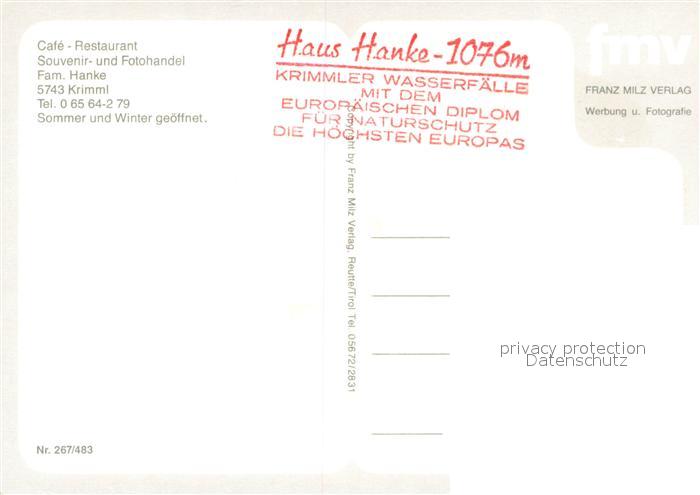 Café - Restaurant
Souvenir- und Fotohandel
Fam. Hanke
5743 Krimml
Tel. 0 65 64-2 79
Sommer und Winter geöffnet.
Haus Hanke - 1076m
KRIMMLER WASSERFÄLLE
MIT DEM
EUROPÄISCHEN DIPLOM
FÜR NATURSCHUTZ
DIE HÖCHSTEN EUROPAS
fmv
FRANZ MILZ VERLAG
Werbung u. Fotografie
Copyright by Franz Milz Verlag, Reutte/Tirol Tel. 05672/2831
privacy protection
Datenschutz
Nr. 267/483